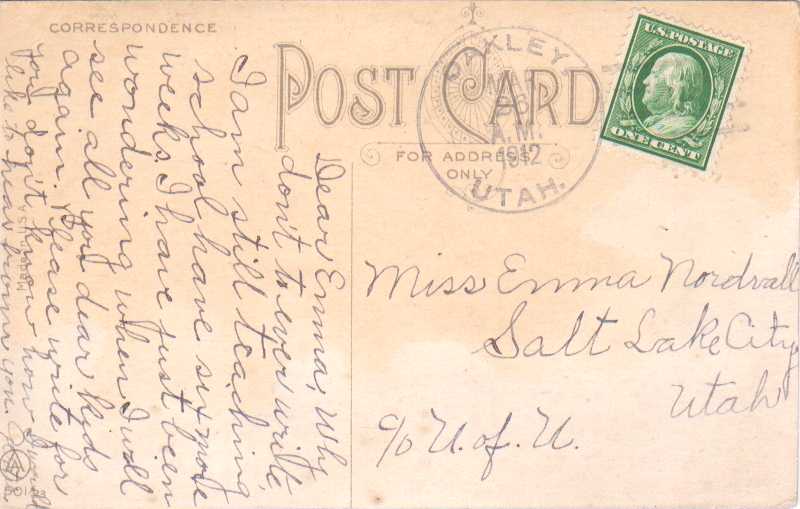 CORRESPONDENCE
POST CARD
FOR ADDRESS
ONLY
OAKLEY
A.M.
1912
UTAH.
U.S. POSTAGE
ONE CENT
Miss Emma Nordvall
Salt Lake City
Utah
c/o U. of U.
Dear Emma, Why
don't to ever write,
I am still teaching
school have six more
weeks. I have just been
wondering when I will
see all you dear kids
again. Please write for
you don't know how I would
like to hear from you.
Made in USA
501/23